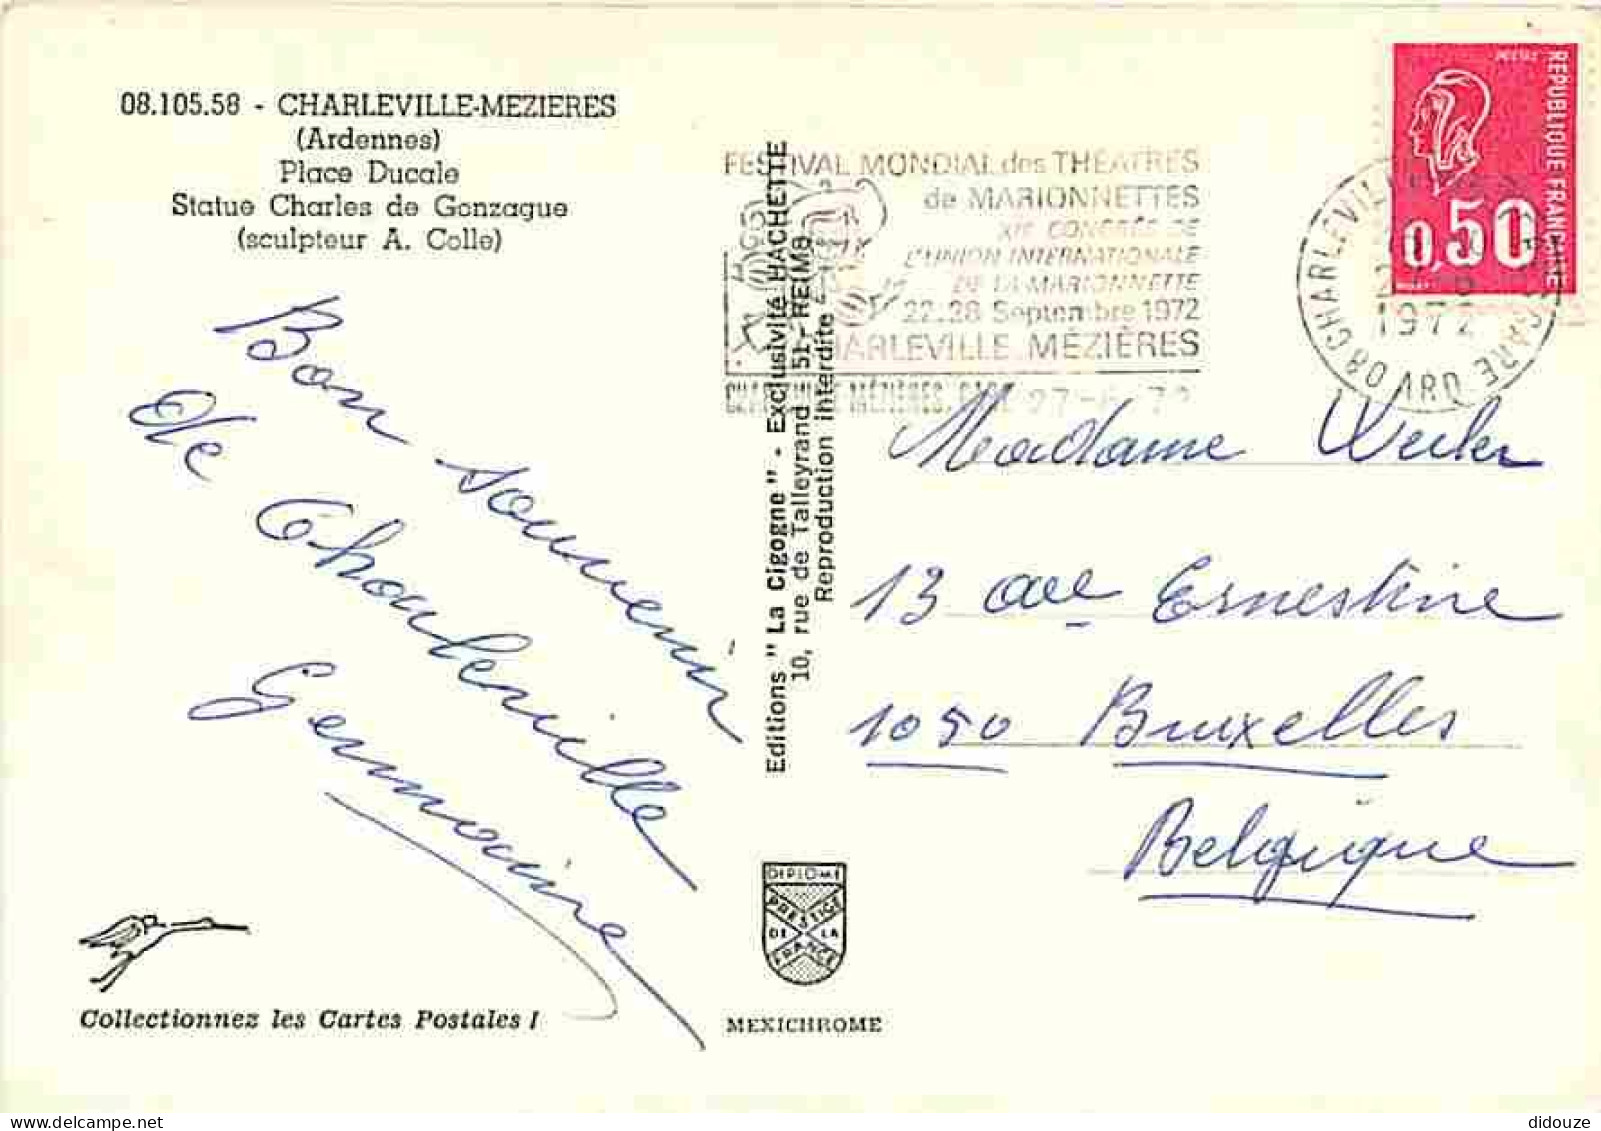 08.105.58 - CHARLEVILLE-MEZIERES
(Ardennes)
Place Ducale
Statue Charles de Gonzague
(sculpteur A. Colle)
Bon souvenir
de Charleville
Germaine
Collectionnez les Cartes Postales !
Editions "La Cigogne" - Exclusivité HACHETTE
10, rue de Talleyrand 51 - REIMS
Reproduction interdite
DIPLOME
PRESTIGE
DE LA
FRANCE
MEXICHROME
FESTIVAL MONDIAL des THÉATRES
de MARIONNETTES
XIe CONGRÉS DE
L'UNION INTERNATIONALE
DE LA MARIONNETTE
22-28 Septembre 1972
CHARLEVILLE MÉZIÈRES
CHARLEVILLE-MÉZIÈRES, GARE 27-6-72
08 CHARLEVILLE GARE
1972
ARD
REPUBLIQUE FRANCAISE
0,50
Madame
13 ave Ernestine
1050 Bruxelles
Belgique
didouze